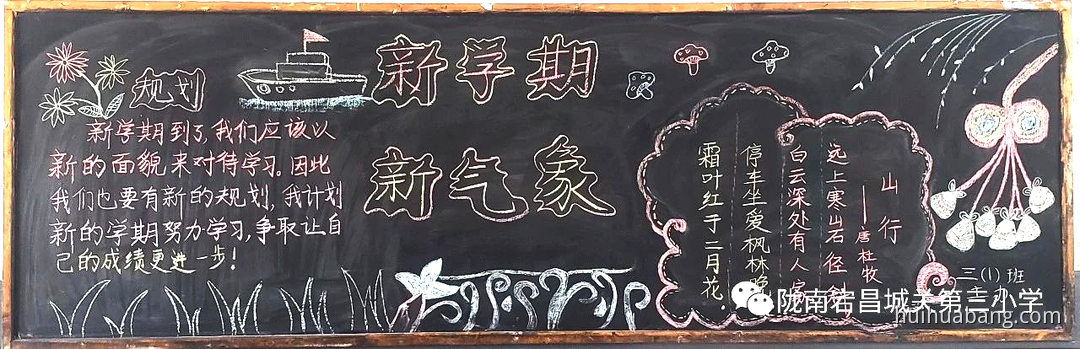 规划
新学期到了，我们应该以
新的面貌来对待学习。因此
我们也要有新的规划，我计划
新的学期努力学习，争取让自
己的成绩更进一步！
新学期
新气象
山行
——唐 杜牧
远上寒山石径
白云深处有人家
停车坐爱枫林
霜叶红于二月花。
三（1）班
陇南宕昌城关第三小学
huihuabang.com